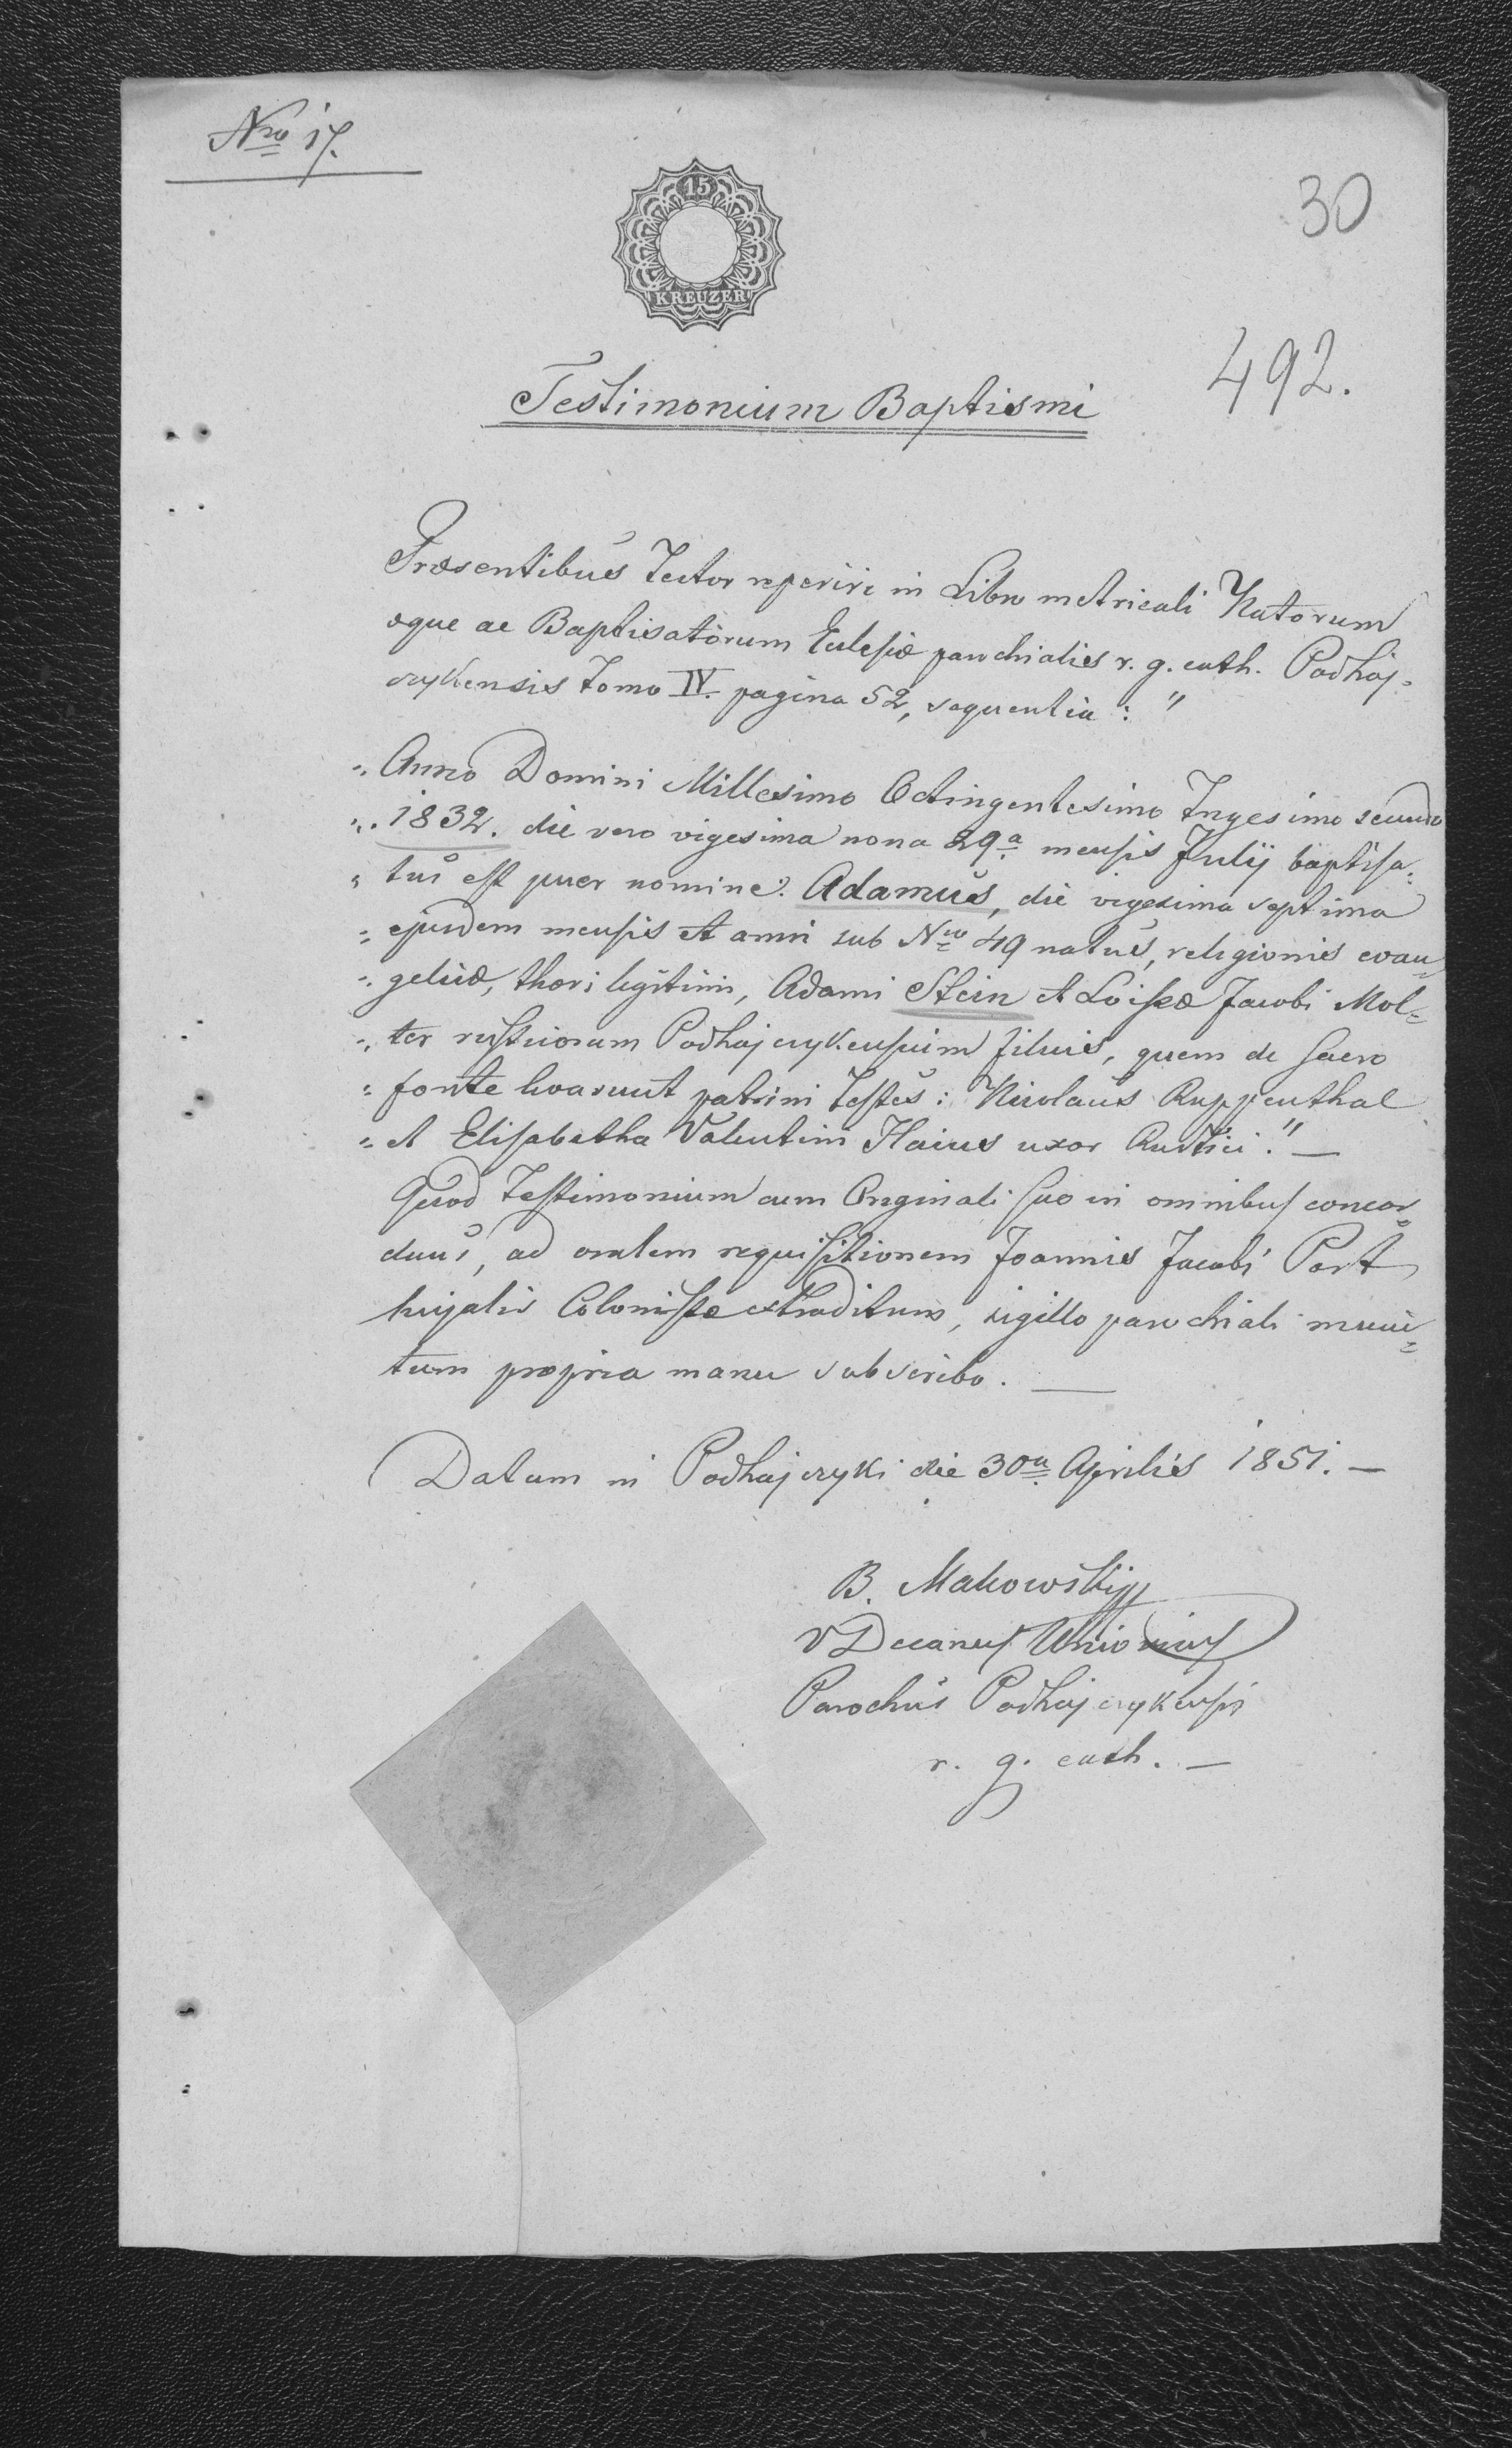 Nro 17.
15
KREUZER
30
492.
Testimonium Baptismi
Præsentibus Testor reperiri in Libro metricali Natorum
æque ac Baptisatorum Eclesiæ parochialis r. g. cath. Podhaj-
czykensis Tomo IV. pagina 52, sequentia: "
„ Anno Domini Millesimo Octingentesimo Trigesimo secundo
„ 1832. die vero vigesima nona 29a mensis Julij baptisa-
„ tus est puer nomine: Adamus, die vigesima septima
„ ejusdem mensis et anni sub Nro 49 natus, religionis evan-
„ gelicæ, thori legitimi, Adami Stein et Loisæ Jacobi Mol-
„ ter rusticorum Podhajczykensium filius, quem de sacro
„ fonte levarunt patrini testes: Nicolaus Ruppenthal
„ et Elisabetha Valentini Haius uxor Rustici." —
Quod Testimonium cum Originali suo in omnibus concor-
dans, ad oralem requisitionem Joannis Jacobi Port
hujatis Colonistæ extraditum, sigillo parochiali muni-
tum propria manu subscribo. —
Datum in Podhajczyki die 30a Aprilis 1851. —
B. Makowskij
V Decanus Uniovius
Parochus Podhajczykensis
r. g. cath. —